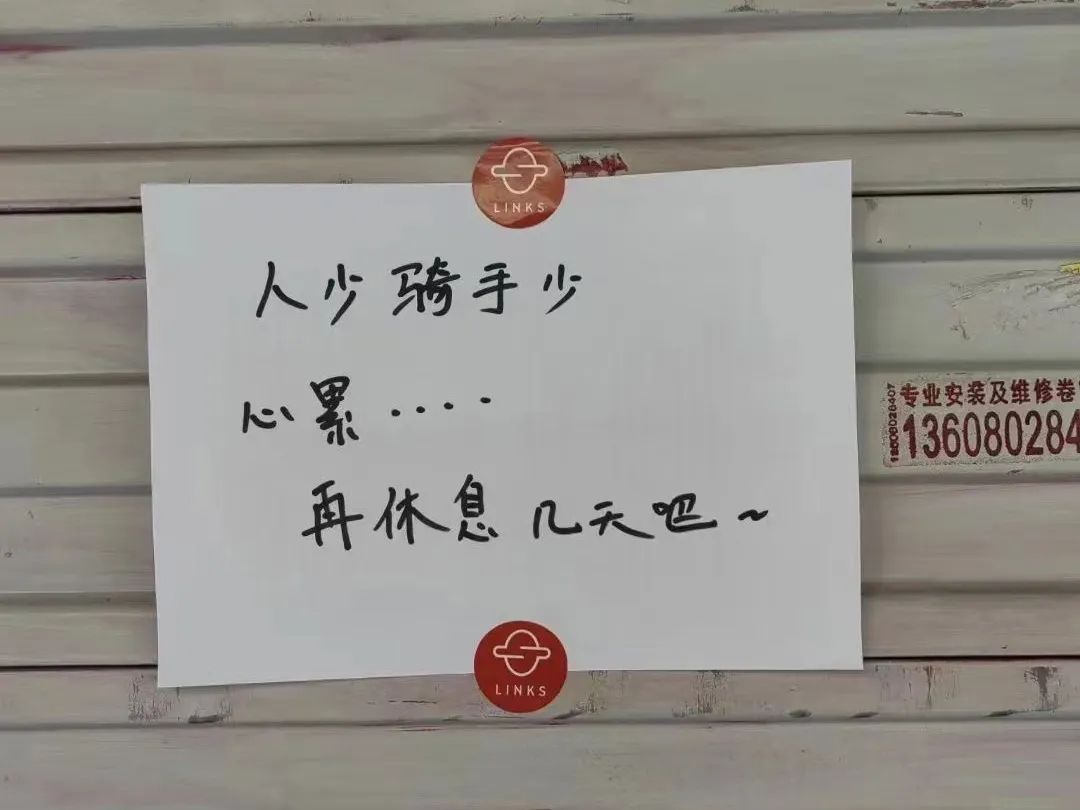 LINKS
人少骑手少
心累····
再休息几天吧~
LINKS
专业安装及维修卷
136080284
13608028407